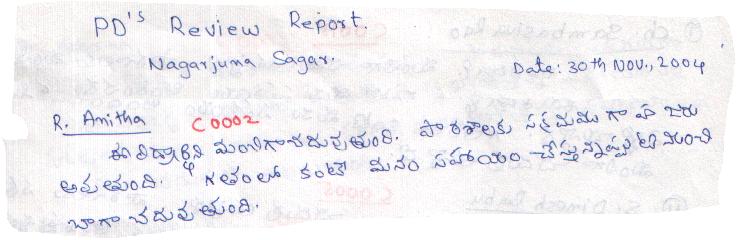 PD's Review Report.
Nagarjuna Sagar.
Date: 30th NOV., 2004
R. Anitha C0002
ఈ విద్యార్థిని మంచిగా చదువుతుంది. పాఠశాలకు సక్రమముగా హాజరు
అవుతుంది. గతంలో కంటే మనం సహాయం చేస్తున్నప్పటి నుంచి
బాగా చదువుతుంది.